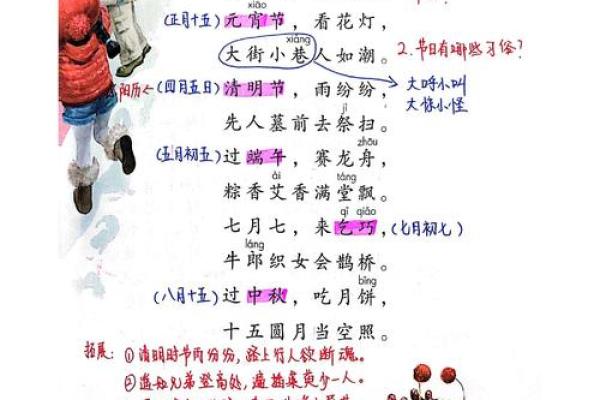 xiāo
(正月十五) 元宵节，看花灯，
xiàng
大街小巷人如潮。 2.节日有哪些习俗?
阳历← (四月五日) 清明节，雨纷纷， 大呼小叫
大惊小怪
jì
先人墓前去祭扫。
zhōu
(五月初五) 过端午，赛龙舟，
ài táng
粽香艾香满堂飘。
qǐ qiǎo
七月七，来乞巧，(七月初七)
láng
牛郎织女会鹊桥。
bǐng
(八月十五) 过中秋，吃月饼，
十五圆月当空照。
拓展: ①清明时节雨纷纷，路上行人欲断魂。
②遥知兄弟登高处，遍插茱萸少一人。